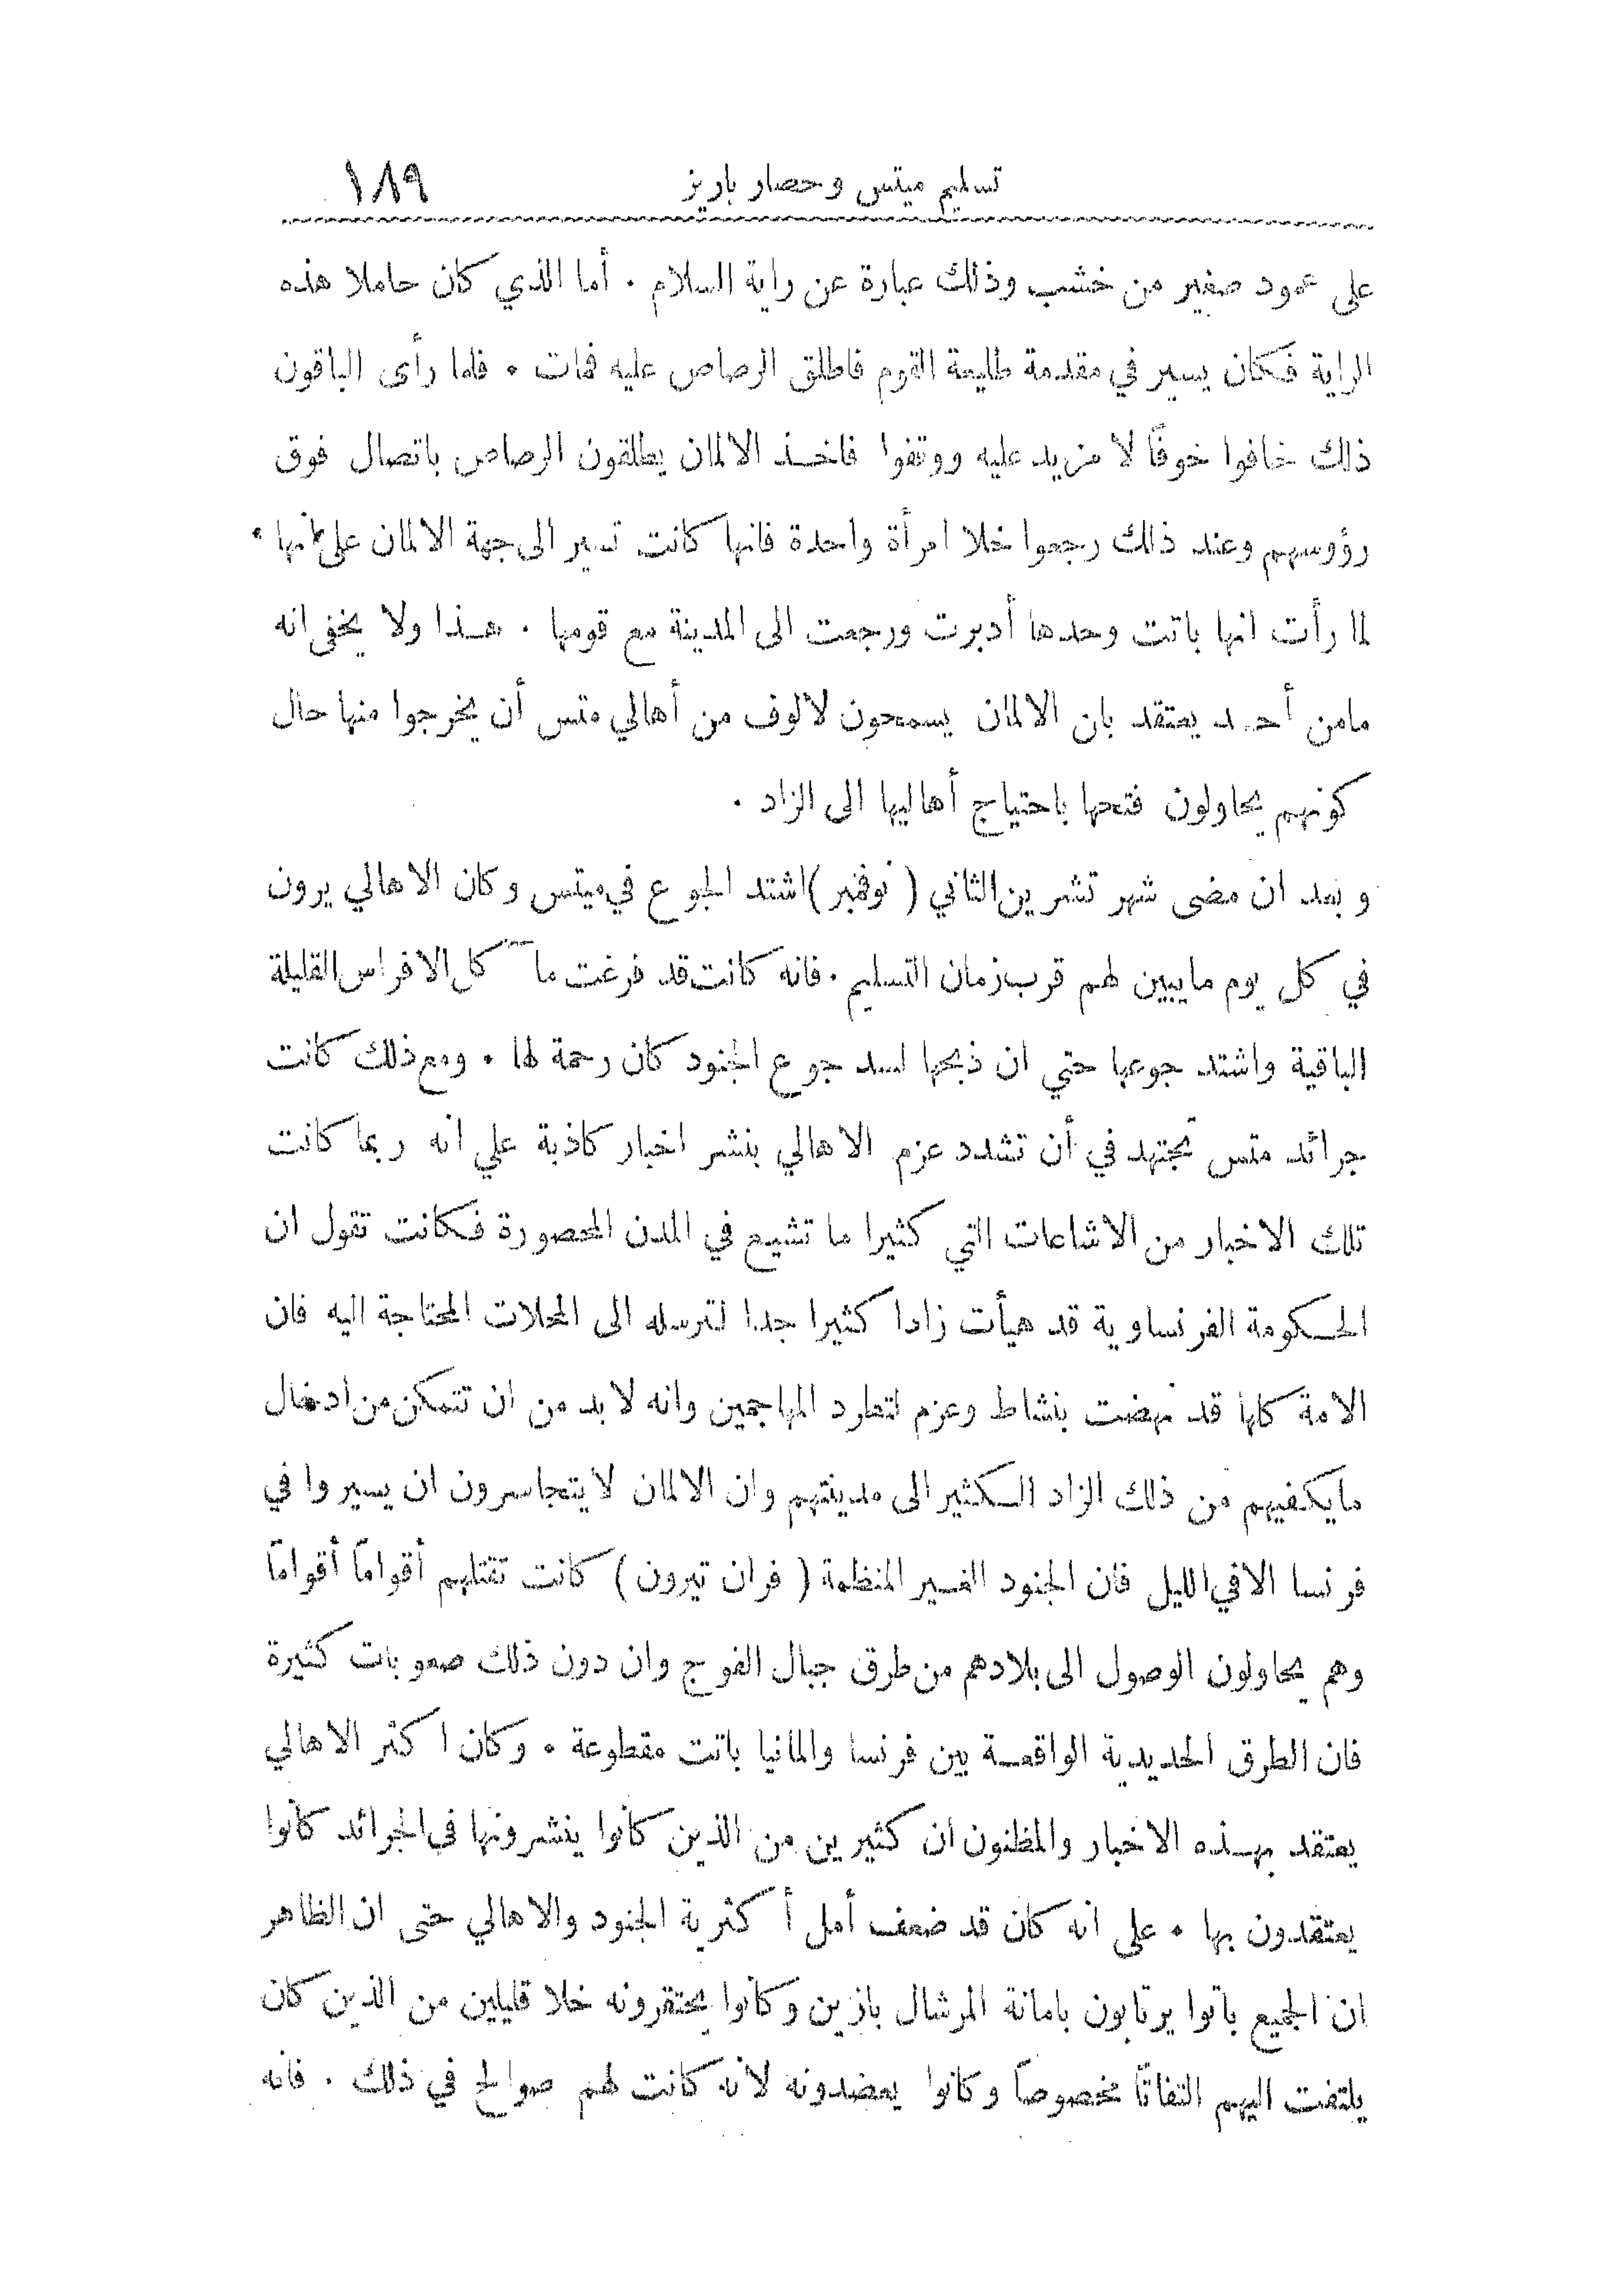 تسليم ميتس وحصار باريز ١٨٩
على عمود صغير من خشب وذلك عبارة عن راية السلام . أما الذي كان حاملا هذه
الراية فكان يسير في مقدمة طليعة القوم فاطلق الرصاص عليه فمات . فلما رأى الباقون
ذلك خافوا خوفًا لا مزيد عليه ووقفوا فاخذ الالمان يطلقون الرصاص باتصال فوق
رؤوسهم وعند ذلك رجعوا خلا امرأة واحدة فانها كانت تسير الى جهة الالمان على انها
لما رأت انها باتت وحدها أدبرت ورجعت الى المدينة مع قومها . هذا ولا يخفى انه
مامن أحد يعتقد بان الالمان يسمحون لالوف من أهالي متس أن يخرجوا منها حال
كونهم يحاولون فتحها باحتياج أهاليها الى الزاد .
وبعد ان مضى شهر تشرين الثاني ( نوفمبر ) اشتد الجوع في ميتس وكان الاهالي يرون
في كل يوم مايبين لهم قرب زمان التسليم . فانه كانت قد فرغت مآكل الافراس القليلة
الباقية واشتد جوعها حتي ان ذبحها لسد جوع الجنود كان رحمة لها . ومع ذلك كانت
جرائد متس تجتهد في أن تشدد عزم الاهالي بنشر اخبار كاذبة علي انه ربما كانت
تلك الاخبار من الاشاعات التي كثيرا ما تشيع في المدن المحصورة فكانت تقول ان
الحكومة الفرنساوية قد هيأت زادا كثيرا جدا لترسله الى المحلات المحتاجة اليه فان
الامة كلها قد نهضت بنشاط وعزم لتطرد المهاجمين وانه لابد من ان تتمكن من ادخال
مايكفيهم من ذلك الزاد الكثير الى مدينتهم وان الالمان لايتجاسرون ان يسيروا في
فرنسا الا في الليل فان الجنود الغير المنظمة ( فران تيرون ) كانت تقتلهم أقوامًا أقوامًا
وهم يحاولون الوصول الى بلادهم من طرق جبال الفوج وان دون ذلك صعوبات كثيرة
فان الطرق الحديدية الواقعة بين فرنسا والمانيا باتت مقطوعة . وكان اكثر الاهالي
يعتقد بهذه الاخبار والمظنون ان كثيرين من الذين كانوا ينشرونها في الجرائد كانوا
يعتقدون بها . على انه كان قد ضعف أمل أكثرية الجنود والاهالي حتى ان الظاهر
ان الجميع باتوا يرتابون بامانة المرشال بازين وكانوا يحتقرونه خلا قليلين من الذين كان
يلتفت اليهم التفاتًا مخصوصاً وكانوا يعضدونه لانه كانت لهم صوالح في ذلك . فانه